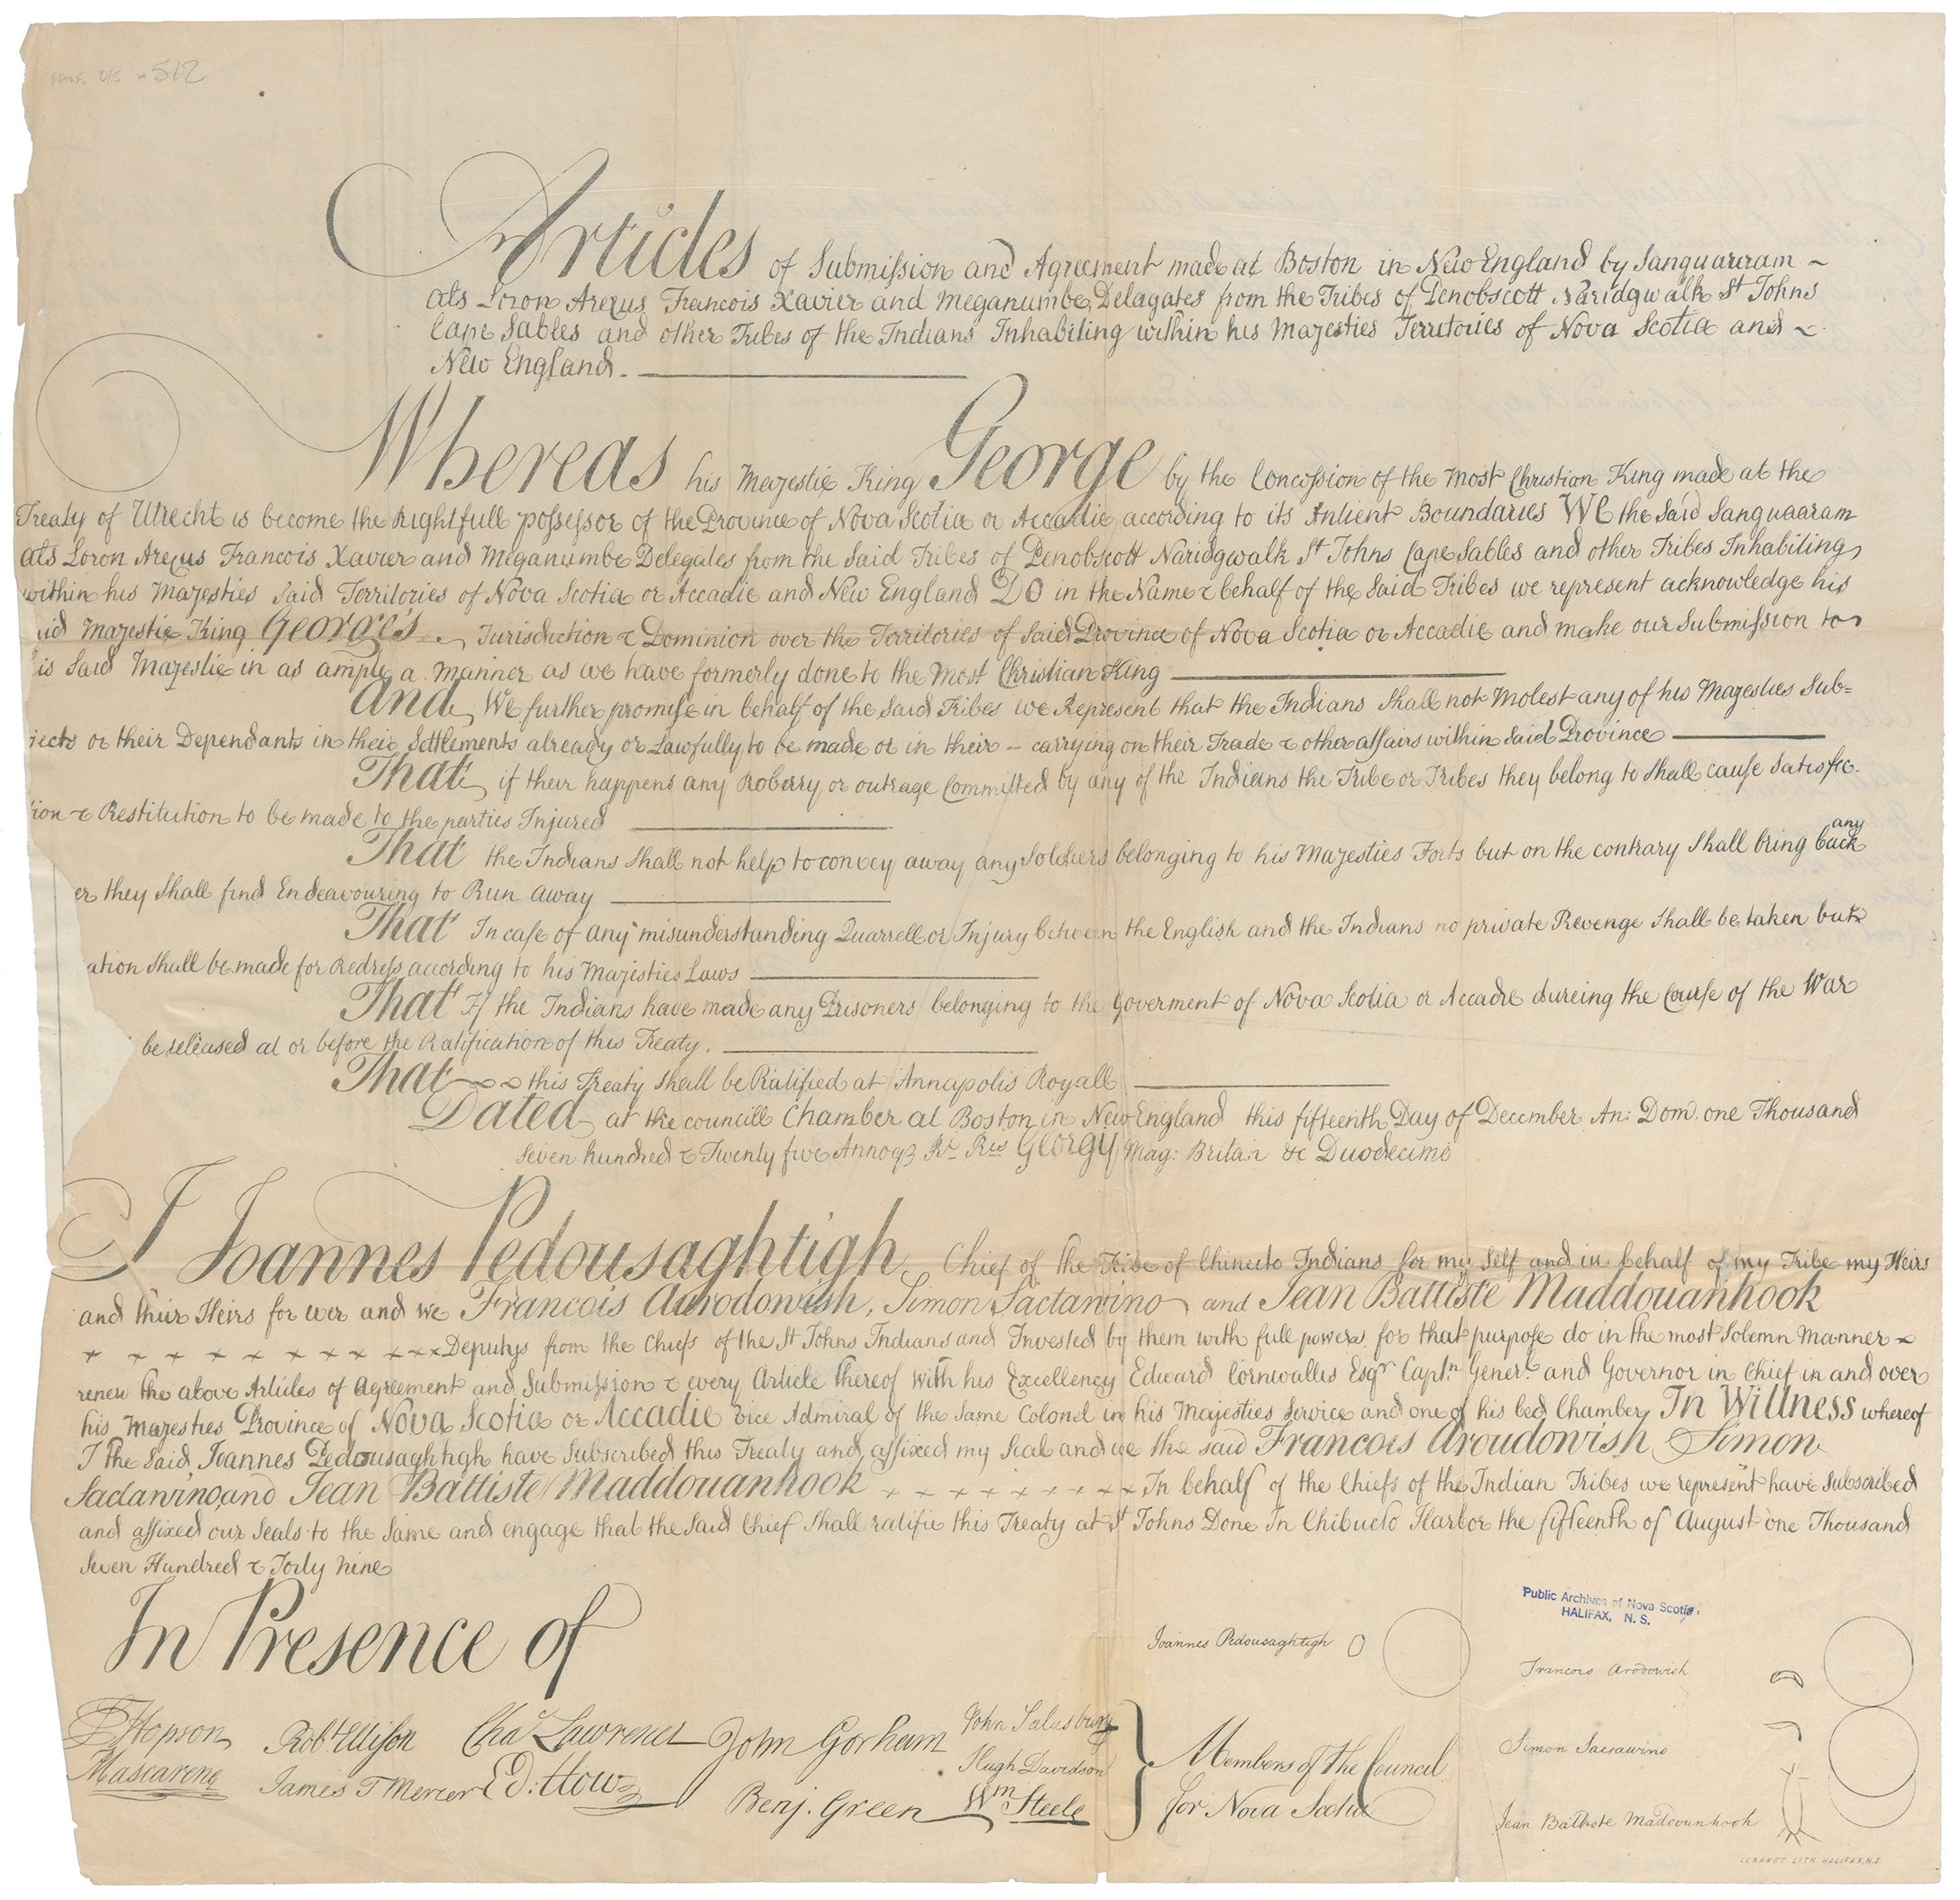 PANS O/S # 512
Articles of Submission and Agreement made at Boston in New England by Sanguaaram
als Loron Arexus Francois Xavier and Meganumbe Delagates from the Tribes of Penobscott Naridgwalk St Johns
Cape Sables and other Tribes of the Indians Inhabiting within his Majesties Territories of Nova Scotia and
New England.
Whereas his Majestie King George by the Concession of the Most Christian King made at the
Treaty of Utrecht is become the Rightfull possessor of the Province of Nova Scotia or Accadie according to its Antient Boundaries WE the Said Sanguaaram
als Loron Arexus Francois Xavier and Meganumbe Delegates from the Said Tribes of Penobscott Naridgwalk St Johns Cape Sables and other Tribes Inhabiting
within his Majesties Said Territories of Nova Scotia or Accadie and New England DO in the Name & behalf of the Said Tribes we represent acknowledge his
aid Majestie King George's Jurisdiction & Dominion over the Territories of Said Province of Nova Scotia or Accadie and make our Submission to
is Said Majestie in as ample a manner as we have formerly done to the Most Christian King
And We further promise in behalf of the Said Tribes we Represent that the Indians Shall not Molest any of his Majesties Sub=
jects or their Dependants in their Settlements already or Lawfully to be made or in their carrying on their Trade & other affairs within Said Province
That if their happens any Roberry or outrage Committed by any of the Indians the Tribe or Tribes they belong to Shall cause Satisfac-
tion & Restitution to be made to the parties Injured
That the Indians Shall not help to convey away any Soldiers belonging to his Majesties Forts but on the contrary Shall bring back any
er they Shall find Endeavouring to Run away
That In case of any misunderstanding Quarrell or Injury between the English and the Indians no private Revenge Shall be taken but
ation Shall be made for Redress according to his Majesties Laws
That If the Indians have made any Prisoners belonging to the Goverment of Nova Scotia or Accadie dureing the Course of the War
be released at or before the Ratification of this Treaty.
That this Treaty Shall be Ratified at Annapolis Royall
Dated at the councill Chamber at Boston in New England this fifteenth Day of December An: Dom. one Thousand
Seven hundred & Twenty five Annoq Ri Ris Georgy Mag: Britan &c Duodecimo
I Joannes Pedousaghtigh Chief of the Tribe of Chinecto Indians for my Self and in behalf of my Tribe my Heirs
and their Heirs for ever and we Francois Aurodowish, Simon Sactawino and Jean Battiste Maddouanhook
Deputys from the Chiefs of the St Johns Indians and Invested by them with full powers for that purpose do in the most Solemn Manner
renew the above Articles of Agreement and Submission & every Article thereof with his Excellency Edward Cornwallis Esqr Captn Generl and Governor in Chief in and over
his Majesties Province of Nova Scotia or Accadie Vice Admiral of the Same Colonel in his Majesties Service and one of his bed Chamber In Willness whereof
I the Said Joannes Pedousaghtigh have Subscribed this Treaty and affixed my Seal and we the said Francois Aroudowish Simon
Sactawino and Jean Battiste Maddouanhook In behalf of the Chiefs of the Indian Tribes we represent have Subscribed
and affixed our Seals to the Same and engage that the Said Chief Shall ratifie this Treaty at St Johns Done In Chibucto Harbor the fifteenth of August one Thousand
Seven Hundred & Forty nine
In Presence of
Public Archives of Nova Scotia,
HALIFAX, N. S.
Joannes Pedousaghtigh
Francois Arodowish
Simon Sactawino
Jean Battiste Maddouanhook
P Hopson
Mascarene
Robt Ellison
James T Mercer
Chas Lawrence
Ed: How
John Gorham
Benj. Green
John Salusbury
Hugh Davidson
Wm Steele
Members of the Council
for Nova Scotia
CLARKES LITH HALIFAX, N.S.